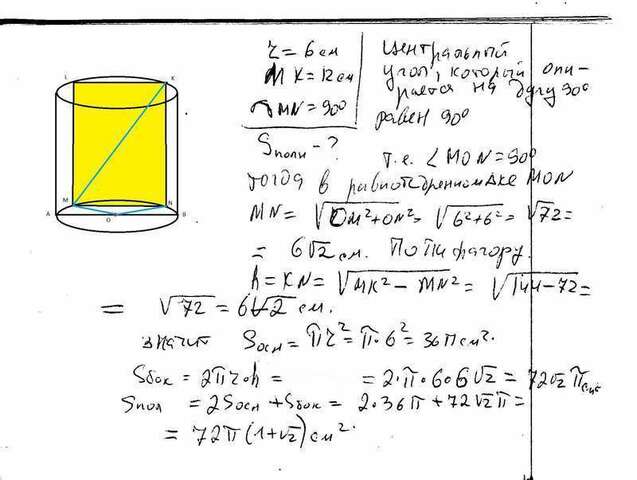 L K
M N
A O B
r = 6 см
MK = 12 см
◠MN = 90°
Sполн - ?
Центральный
угол, который опи-
рается на дугу 90°
равен 90°
т.е. ∠MON = 90°
тогда в равнобедренном ∆ке MON
MN = √OM²+ON² = √6²+6² = √72 =
= 6√2 см. По Пифагору.
h = KN = √MK² - MN² = √144-72 =
= √72 = 6√2 см.
значит Sосн = πr² = π·6² = 36π см².
Sбок = 2πr·h = = 2·π·6·6√2 = 72√2 π см²
Sпол = 2Sосн + Sбок = 2·36π + 72√2π =
= 72π(1+√2) см².